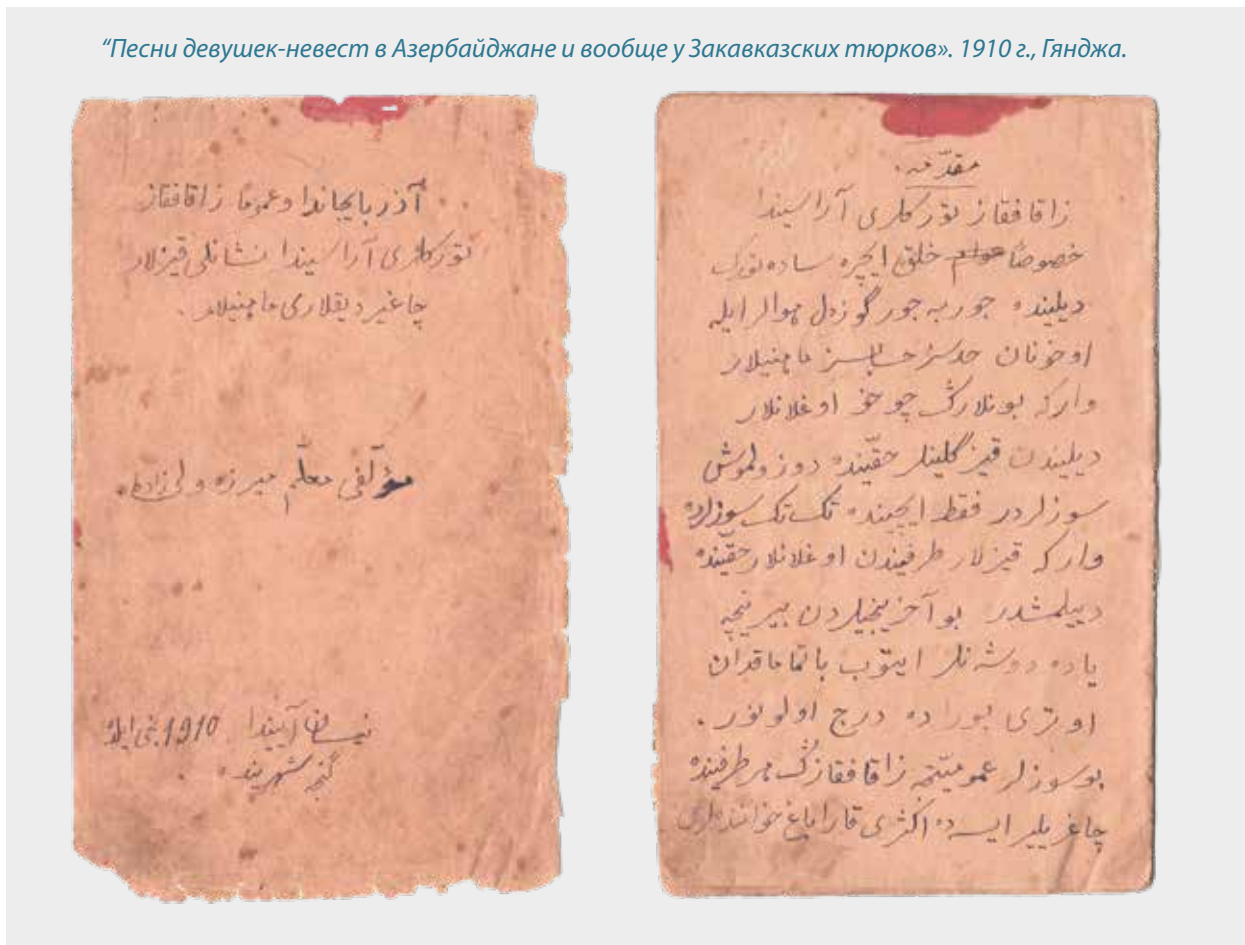 “Песни девушек-невест в Азербайджане и вообще у Закавказских тюрков». 1910 г., Гянджа.
آذربایجاندا و عموما زاقافقاز
تورکلری آراسیندا نشانلی قیزلار
چاغیردیقلاری ماهنیلار.
مؤلفی معلم میرزه ولی زاده.
نیسان آییندا 1910 نجی ایلده
گنجه شهرینده.
مقدّمه.
زاقافقاز تورکلری آراسیندا
خصوصاً خلق ایچره ساده تورک
دیلینده جور به جور گوزل هوالر ایله
اوخونان حدسز حسابسز ماهنیلار
وار که بونلارڭ چوخو اوغلانلار
دیلیندن قیز گلینلر حقّینده دوزولموش
سوزلردر فقط ایچینده تک تک سوزلرده
وار که قیزلار طرفیندن اوغلانلار حقّینده
دییلمشدر بو آخرینجیلردن بیر نیچه
یاده دوشنلر ایتوب باتماماقدان
اوتری بوراده درج اولونور.
بو سوزلر عمومیّتجه زاقافقازڭ هر طرفینده
چاغریلیر ایسه ده اکثری قاراباغ خواننده‌لری